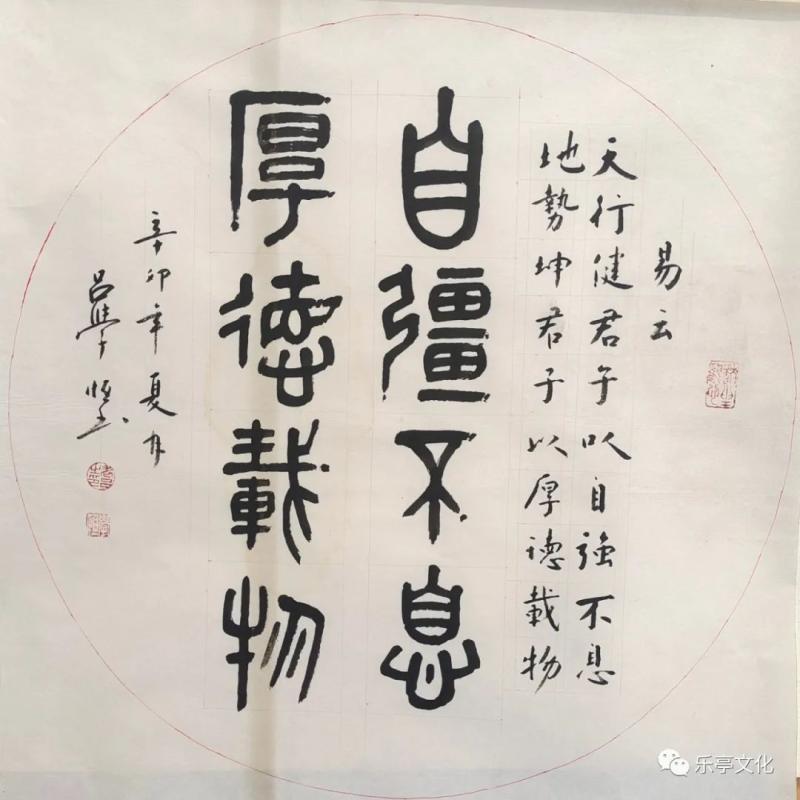 易云
天行健君子以自强不息
地勢坤君子以厚德載物
自彊不息
厚德載物
辛卯年夏月
吕學
乐亭文化